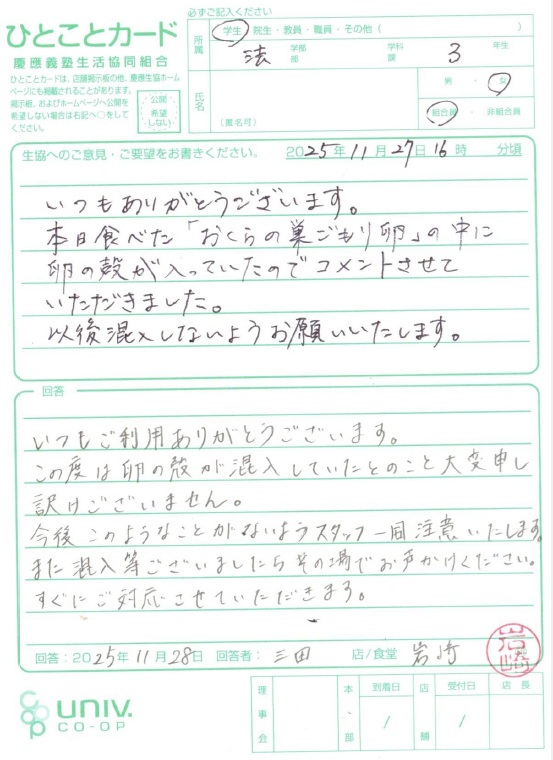 ひとことカード
慶應義塾生活協同組合
ひとことカードは、店舗掲示板の他、慶應生協ホーム
ページにも掲載されることがあります。
掲示板、およびホームページへ公開を
希望しない場合は右記へ○をして
ください。
公開
希望
しない
必ずご記入ください
所属
学生 院生・教員・職員・その他( )
法 学部 部 学科 課 3 年生
氏名
(匿名可)
男・女
組合員・非組合員
生協へのご意見・ご要望をお書きください。 2025年11月27日16時 分頃
いつもありがとうございます。
本日食べた「おくらの巣ごもり卵」の中に
卵の殻が入っていたのでコメントさせて
いただきました。
以後混入しないようお願いいたします。
回答
いつもご利用ありがとうございます。
この度は卵の殻が混入していたとのこと大変申し
訳けございません。
今後このようなことがないようスタッフ一同注意いたします。
また混入等ございましたらその場でお声かけください。
すぐにご対応させていただきます。
回答:2025年11月28日 回答者: 三田 店/食堂 岩崎
岩崎
univ.
CO-OP
理事会
本・部
到着日
/
店舗
受付日
/
店長